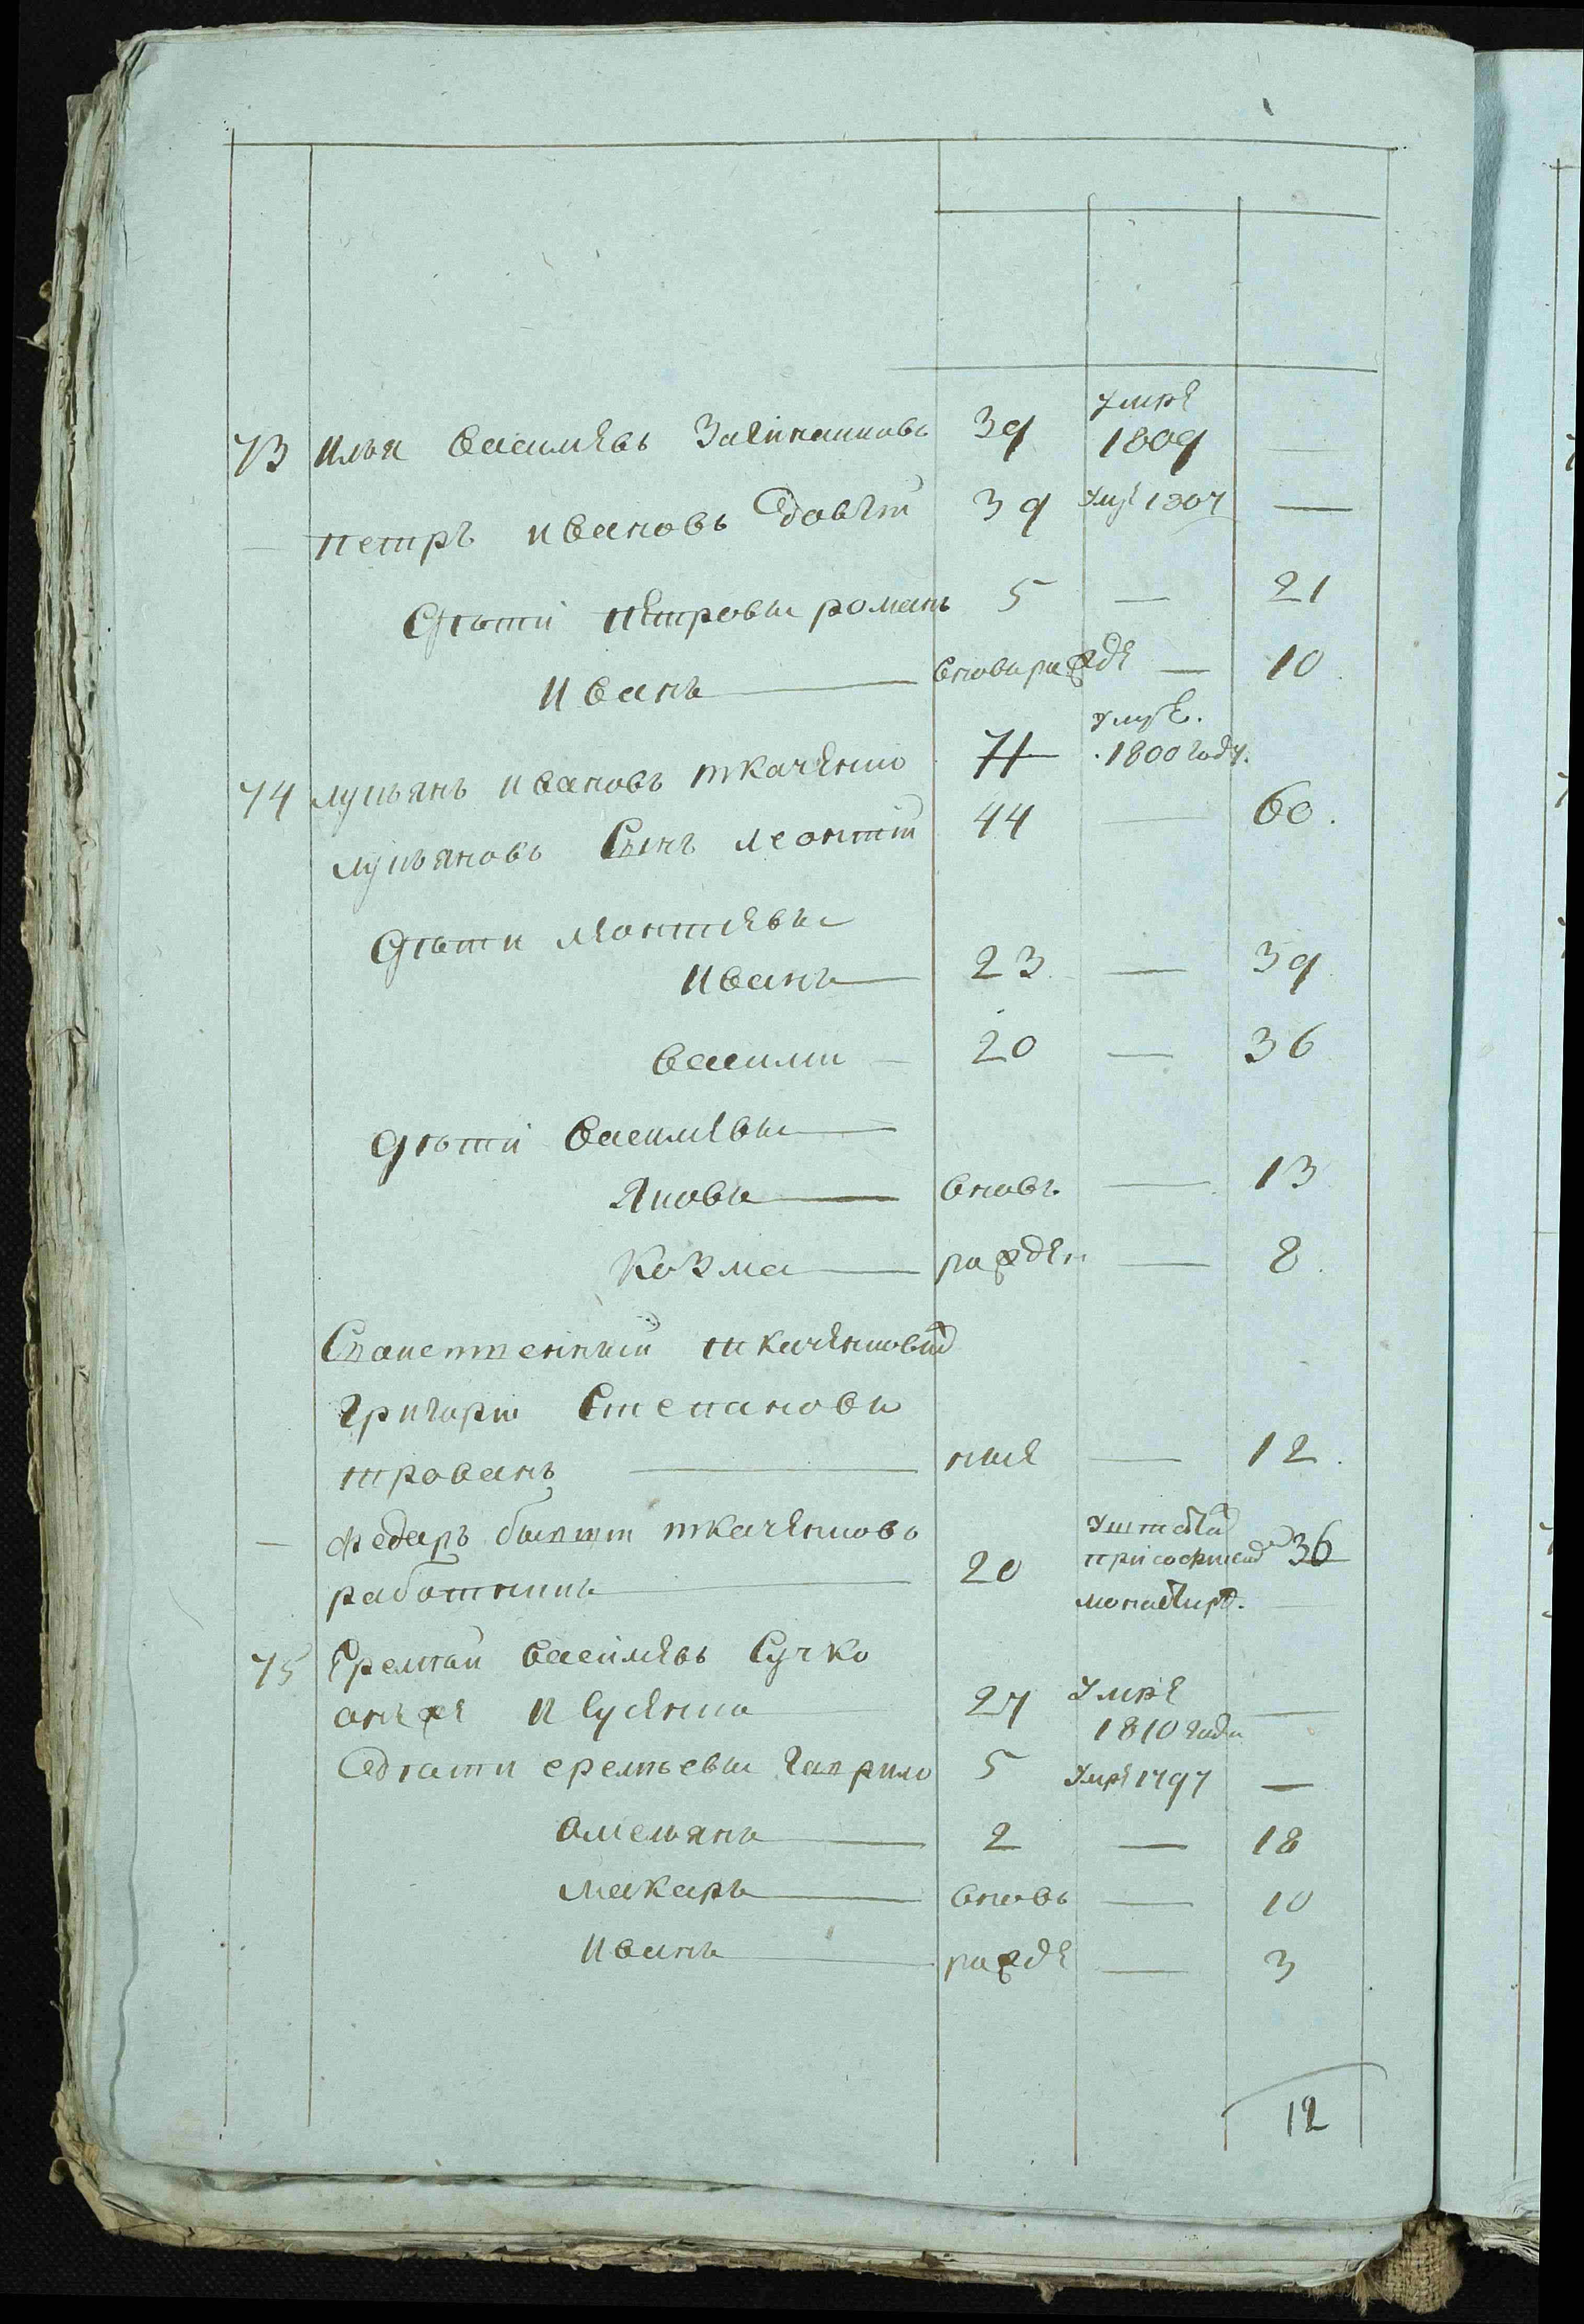 73 илья васильевъ 39 умре 1809 —
— петръ ивановъ вдовый 39 умре 1807 —
дѣти петровы романъ 5 — 21
иванъ вновь рожде — 10
74 лукьянъ ивановъ ткаченко 71 умре. 1800 году.
лукьяновъ сынъ леонтий 44 — 60.
дѣти леонтиевы
иванъ 23 — 39
васили 20 — 36
дѣти василевы
яковъ вновь — 13
козма рожден — 8.
ткаченковий
григорий степановъ
12.
— федаръ бывши ткаченковъ
работникъ 20 при монастире. 36
75 еремѣй василевъ сучко
онже и 27 умре 1810 года —
дѣти еремеевы гаврило 5 умре 1797 —
омельянъ 2 — 18
макаръ вновь — 10
иванъ рожде — 3
12